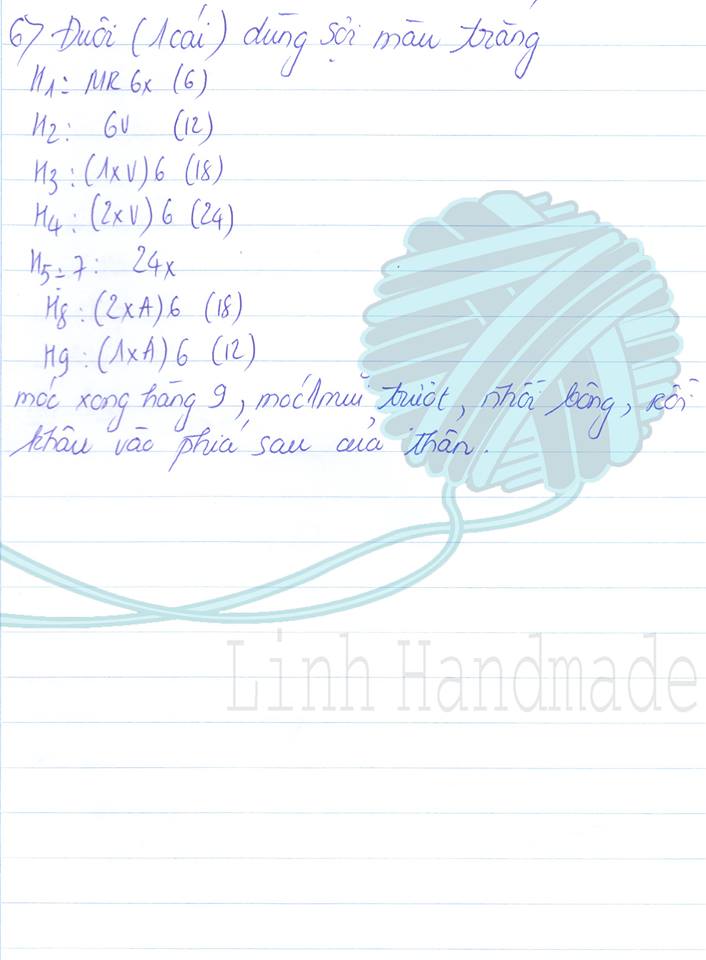 6) Đuôi (1 cái) dùng sợi màu trắng
H1: MR 6x (6)
H2: 6V (12)
H3: (1xV)6 (18)
H4: (2xV)6 (24)
H5÷7: 24x
H8: (2xA)6 (18)
H9: (1xA)6 (12)
móc xong hàng 9, móc 1 mũi trượt, nhồi bông, rồi
khâu vào phía sau của thân.
Linh Handmade